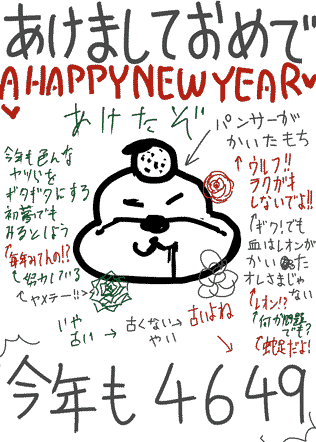 あけましておめで
A HAPPY NEW YEAR
あけたぞ
パンサーが
かいたもち
今年も色んな
ヤツらを
ギタギタにする
初夢でも
みるとしよう
↑毎年みてんの!?
↑努力している
↑ヤメテー!!>
↑ウルフ!!
ラクガキ
しないでよ!!
↑ギク!でも
血はレオンが
かいた
オレさまじゃ
ない
↑レオン!?
↑何か問題
でも?
↑蛇足だよ!
いや
古い→
古くない→
やい
古いよね
今年も4649